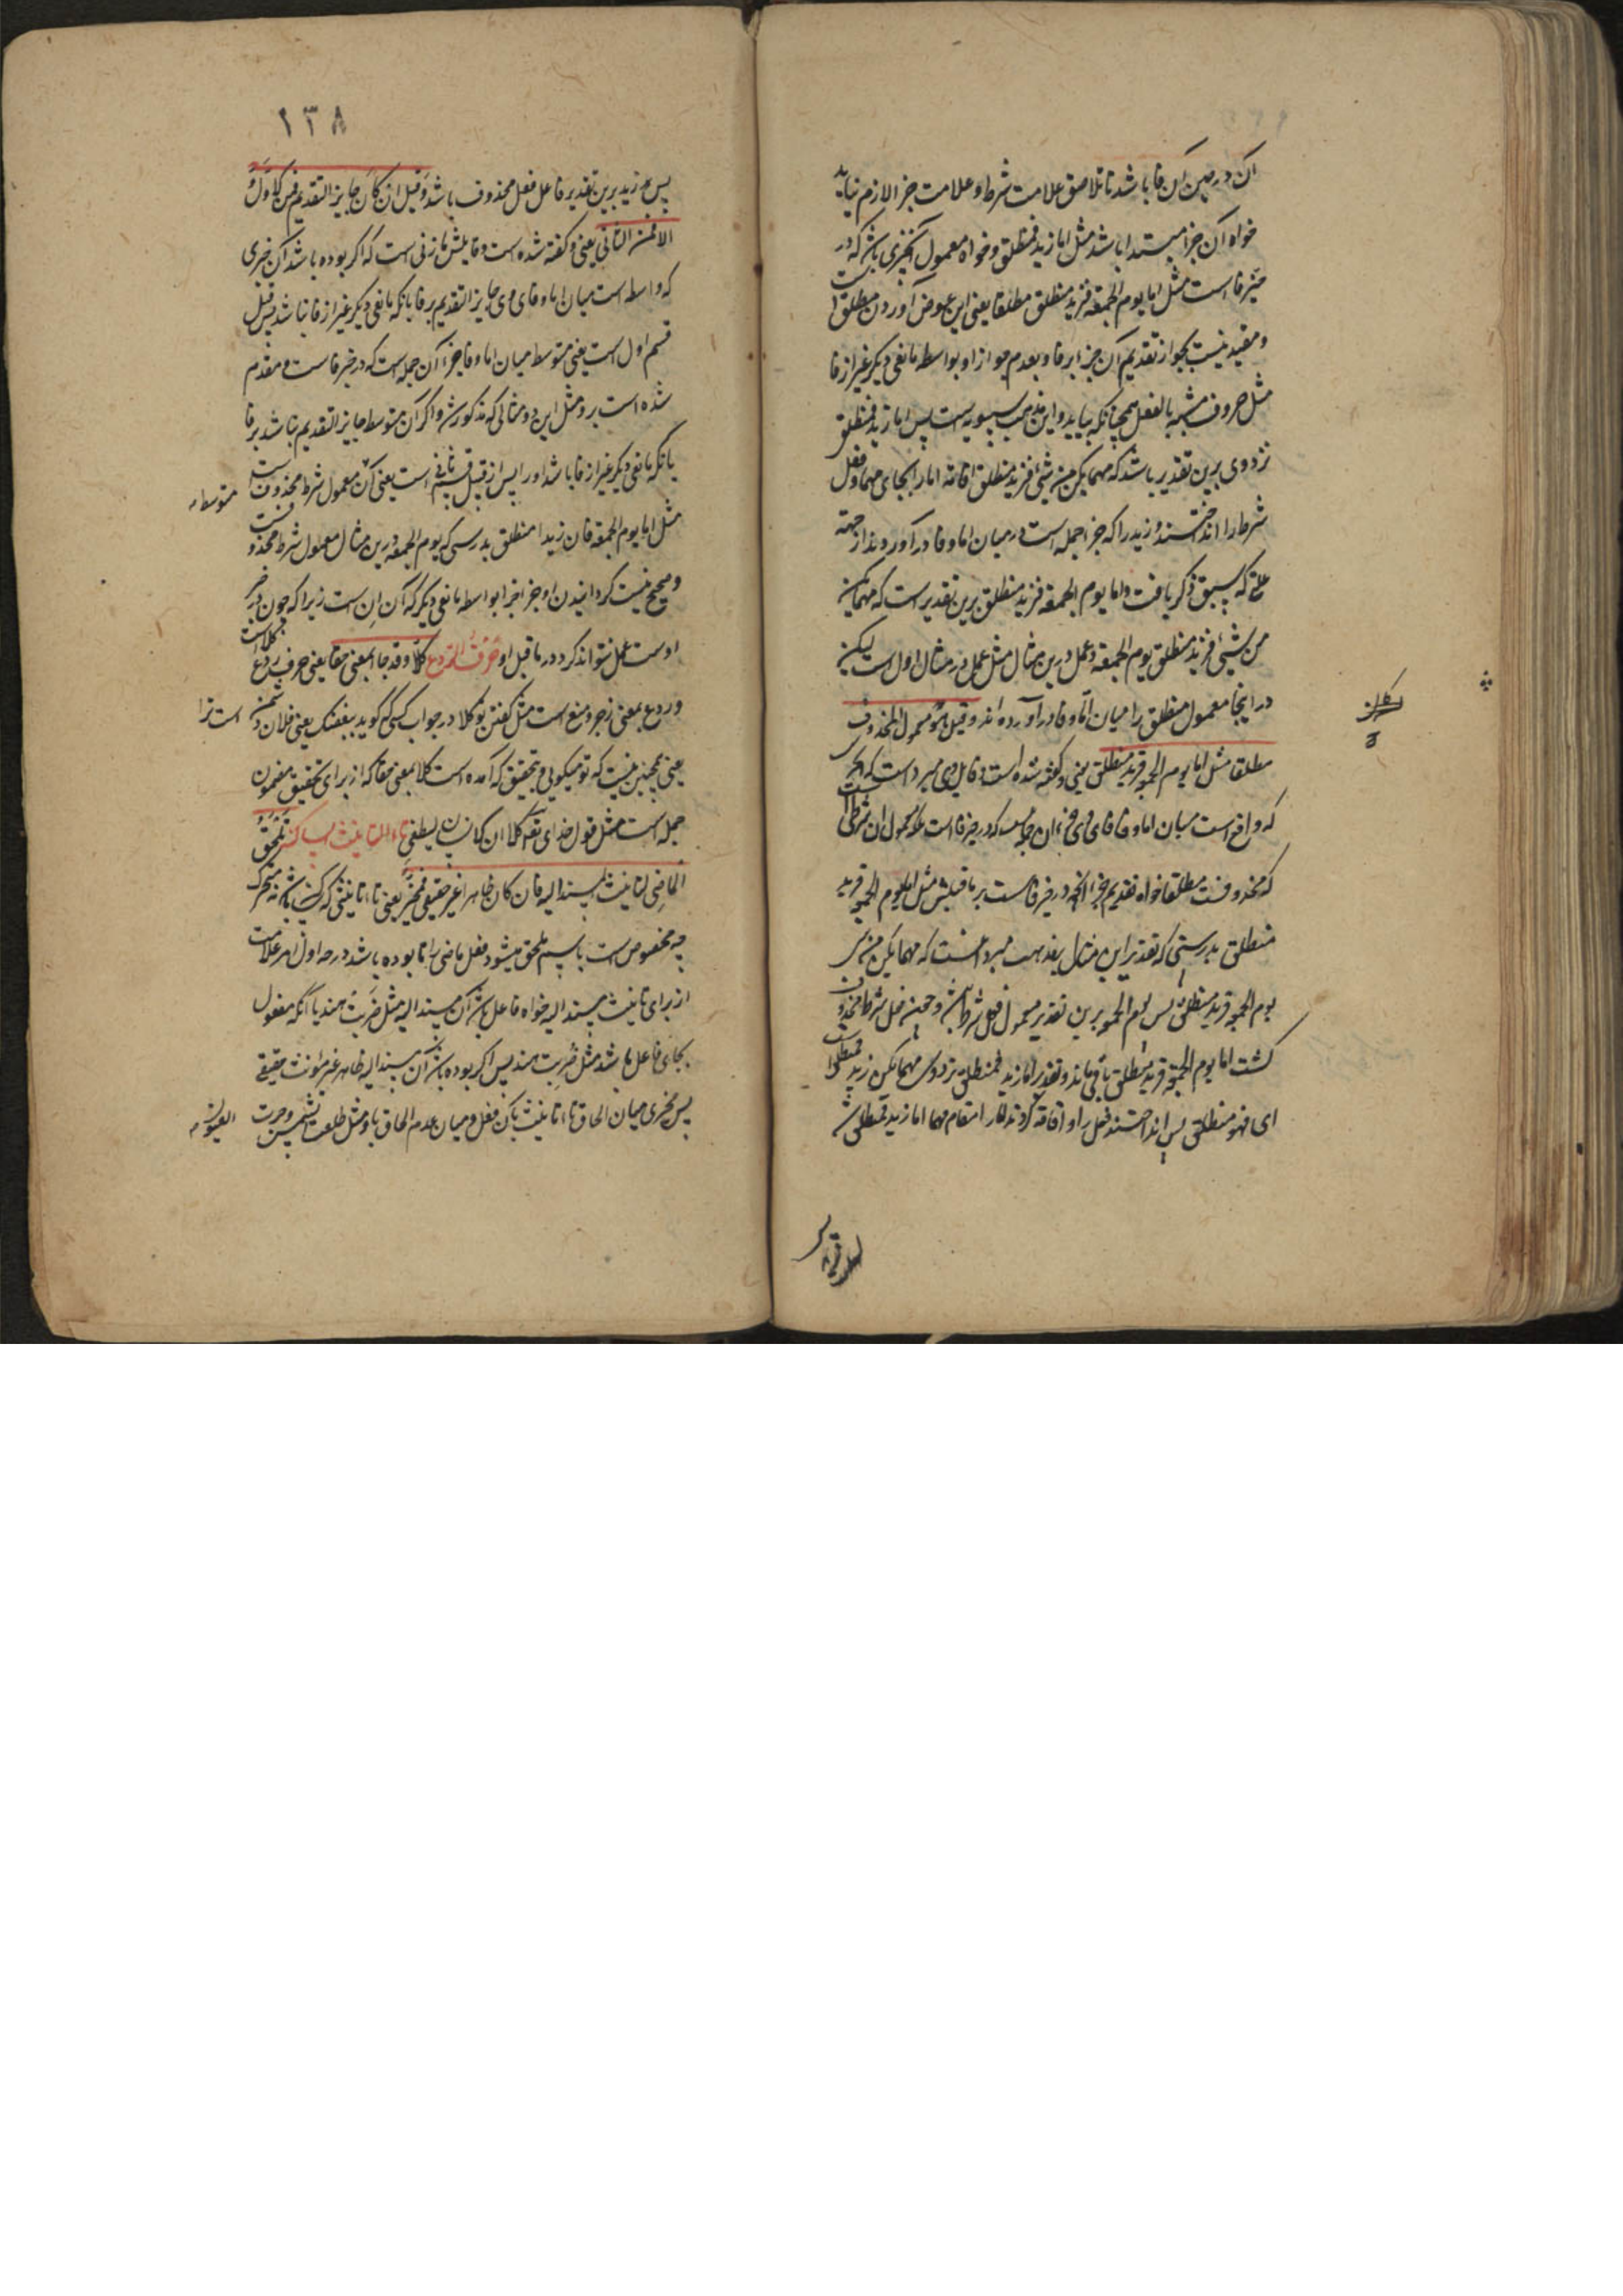 آن در حین آن فا باشد تا تلاصق علامت شرط و علامت جزا لازم نیاید
خواه آن جزا مبتدا باشد مثل اما زید فمنطلق و خواه معمول آن چیزی باشد که در
حیز فا است مثل اما یوم الجمعة فزید منطلق مطلقا یعنی این عوض آوردن مطلق است
و مقید نیست بجواز تقدیم آن جزء بر فا و بعدم جواز او بواسطه مانعی دیگر غیر از فا
مثل حروف مشبه بالفعل همچنانکه بیاید و این مذهب سیبویه است پس اما زید فمنطلق
نزد وی برین تقدیر باشد که مهما یکن من شیئ فزید منطلق اقامة اما را بجای مهما و فعل
شرط را انداختند و زید را که جزء جمله است در میان اما و فا در آوردند از جهة
که سبق ذکر یافت و اما یوم الجمعة فزید منطلق برین تقدیر است که مهما یکن
من شیئ فزید منطلق یوم الجمعة و عمل درین مثال مثل عمل در مثال اول است لیکن
در اینجا معمول منطلق را میان اما و فا در آورده اند و قیل هو معمول المحذوف
مطلقا مثل اما یوم الجمعة فزید منطلق یعنی و گفته شده است و قایل وی مبرد است که
که واقع است میان اما و فای وی جزء آن جمله نیست که در حیز فا است بلکه معمول آن شرط است
که محذوفست مطلقا خواه تقدیم جزء آنچه در حیز فاست بر ما قبلش مثل اما یوم الجمعة فزید
منطلق بدرستی که تقدیر این مثال بمذهب مبرد آنست که مهما یکن من
یوم الجمعة فزید منطلق پس یوم الجمعة برین تقدیر معمول فعل شرط باشد و چون فعل شرط محذوف
گشت اما یوم الجمعة فزید منطلق باقی ماند و تقدیر اما زید فمنطلق نزد وی مهما یکن زید فمنطلق
ای فهو منطلق پس انداختند فعل را و اقامة کردند اما را مقام مهما اما زید فمنطلق شد
١٣٨
پس زید برین تقدیر فاعل فعل محذوف باشد و قیل ان کان جایز التقدیم فمن الاول و
الا فمن الثانی یعنی و گفته شده است و قایلش مازنی است که اگر بوده باشد آن چیزی
که واسطه است میان اما و فای وی جایز التقدیم بر فا بانکه مانعی دیگر غیر از فا نباشد پس از قبیل
قسم اول است یعنی متوسط میان اما و فا جزء آن جمله است که در حیز فاست و مقدم
شده است برو مثل این دو مثالی که مذکور شد و اگر آن متوسط جایز التقدیم نباشد بر فا
بانکه مانعی دیگر غیر از فا باشد او را پس از قبیل قسم ثانی است یعنی آن متوسط معمول شرط محذوف است
مثل اما یوم الجمعة فان زیدا منطلق بدرستی که یوم الجمعة درین مثال معمول شرط محذوفست
و صحیح نیست گردانیدن او جزء جزا بواسطه مانعی دیگر که آن اِن است زیرا که چون در حیز
اوست عمل نتواند کرد در ما قبل او حرف الردع کلا و قد جاء بمعنی حقا یعنی حرف ردع کلا است
و ردع بمعنی زجر و منع است مثل گفتن تو کلا در جواب کسی که گوید یبغضک یعنی فلان دشمن است ترا
یعنی همچنین نیست که تو میگویی و بتحقیق که آمده است کلا بمعنی حقا که از برای تحقیق مضمون
جمله است مثل قول خدای تعالی کلا ان الانسان لیطغی تاء التانیث الساکنة تلحق
الماضی لتانیث المسند الیه فان کان ظاهرا غیر حقیقی فمخیر یعنی تاء تانیثی که ساکن باشد نه متحرک
چه مخصوص است باسم ملحق میشود فعل ماضی را تا بوده باشد در حد اول امر علامت
از برای تانیث مسند الیه خواه فاعل باشد آن مسند الیه مثل ضربت هند یا آنکه مفعول
بجای فاعل باشد مثل ضربت هند پس اگر بوده باشد آن مسند الیه ظاهر غیر مؤنث حقیقی
پس مخیری میان الحاق تاء تانیث بآن فعل و میان عدم الحاق باو مثل طلعت الشمس و جرت العیون